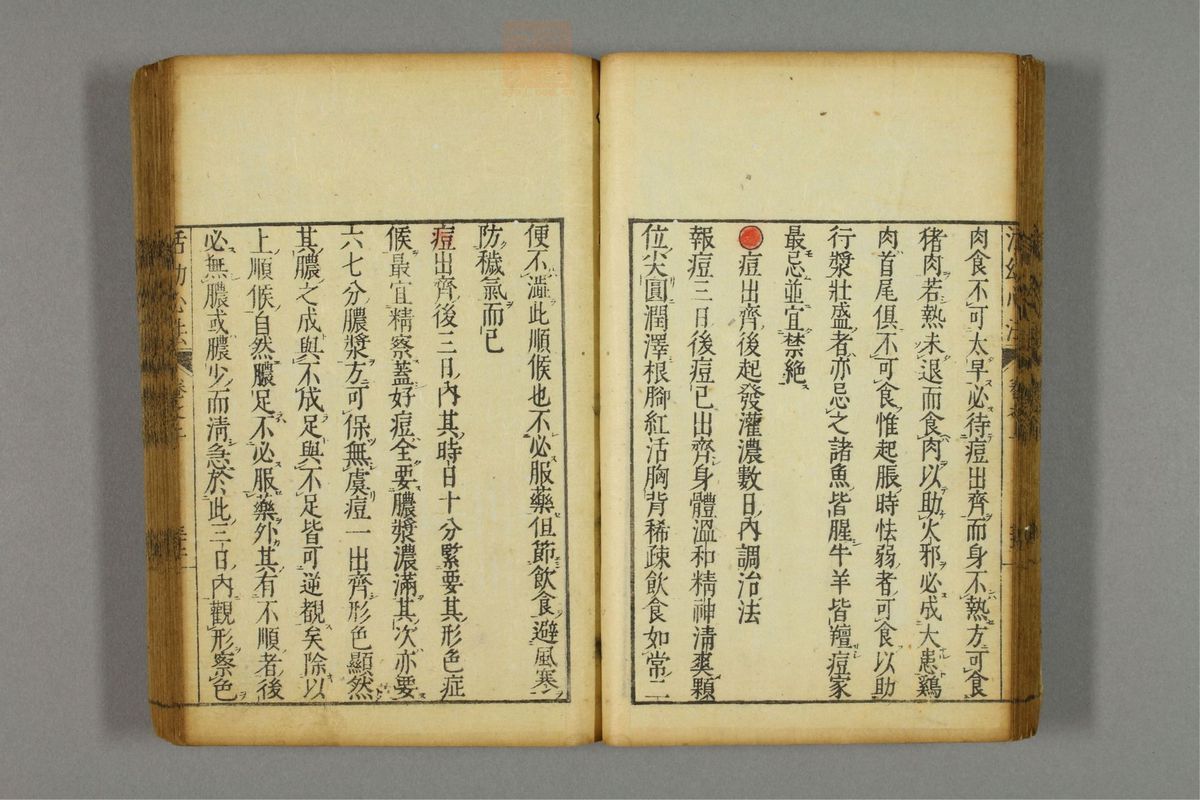 肉食不可太早必待痘出齊而身不熱方可食
猪肉若熱未退而食肉以助火邪必成大患鷄
肉首尾俱不可食惟起脹時怯弱者可食以助
行漿壯盛者亦忌之諸魚皆腥牛羊皆羶痘家
最忌並宜禁絶
痘出齊後起發灌濃數日內調治法
報痘三日後痘已出齊身體溫和精神淸爽顆
位尖圓潤澤根腳紅活胸背稀疎飮食如常二
便不澁此順候也不必服藥但節飮食避風寒
防穢氣而已
痘出齊後三日內其時日十分緊要其形色症
候最宜精察蓋好痘全要膿漿濃滿其次亦要
六七分膿漿方可保無虞痘一出齊形色顯然
其膿之成與不成足與不足皆可逆覩矣除以
上順候自然膿足不必服藥外其有不順者後
必無膿或膿少而淸急於此三日內觀形察色
活幼心法
卷之二